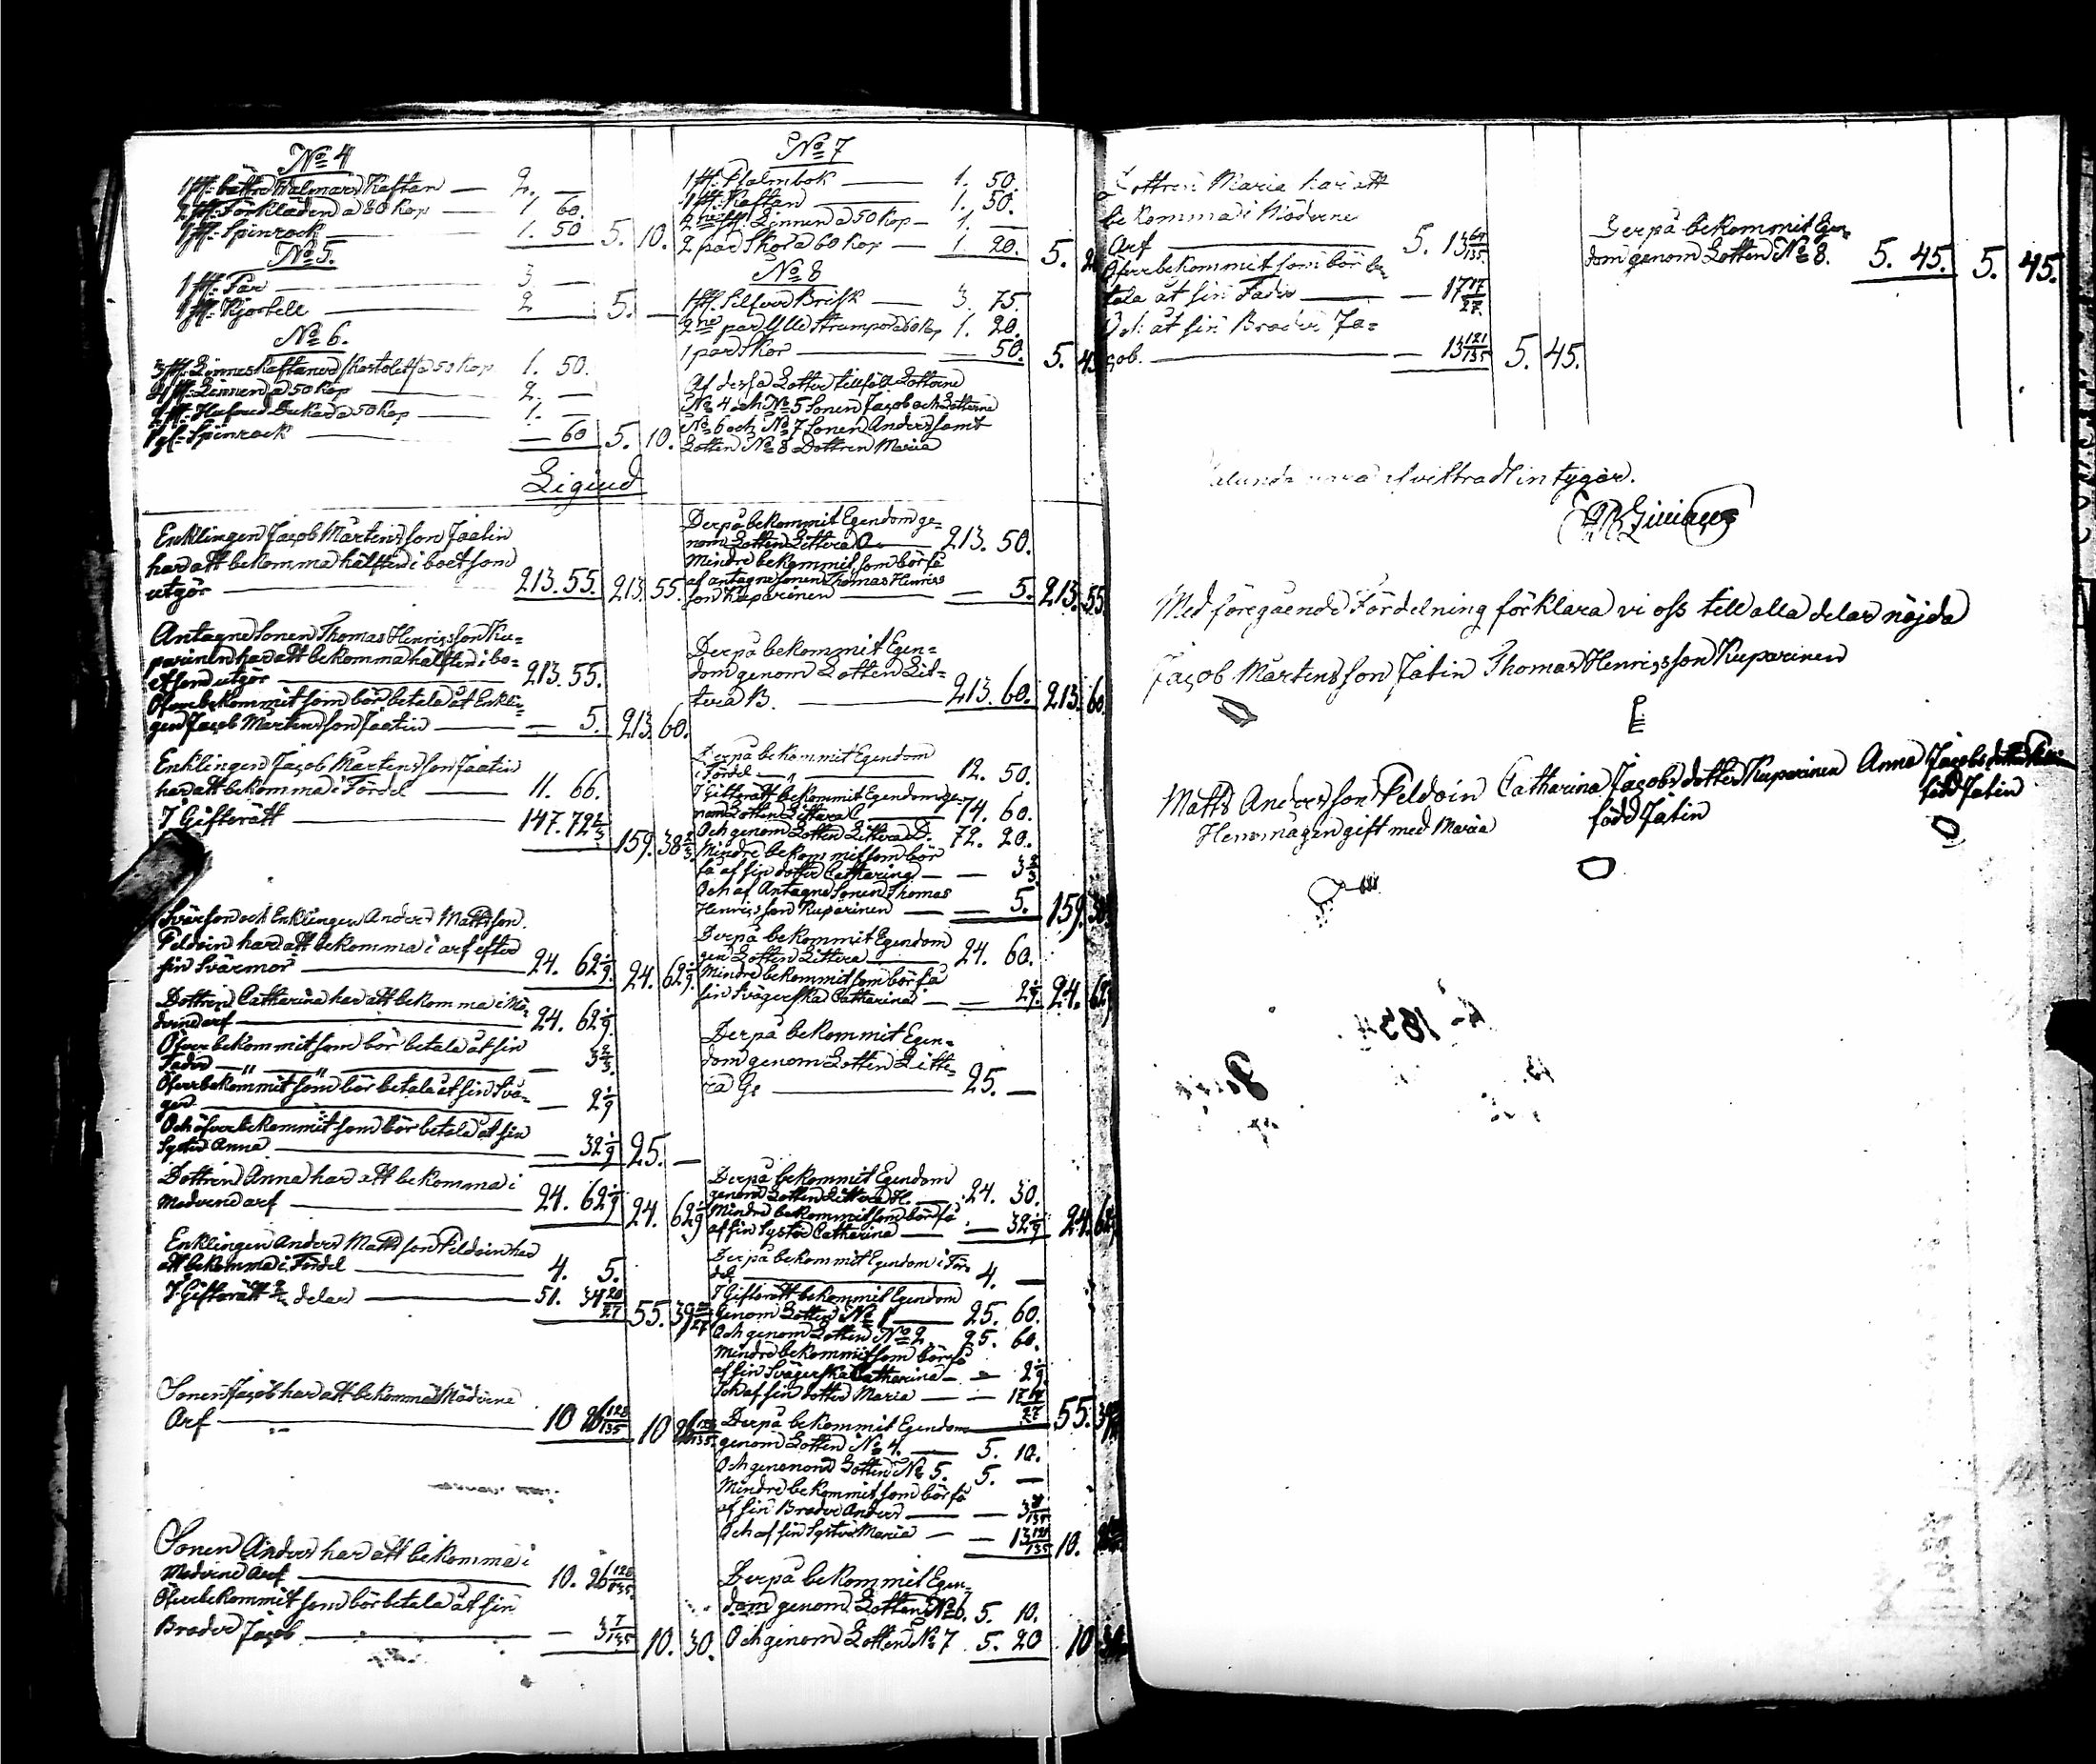 No 4
1 st: bättre Walmars Kaftan — 2. —
2 st: Förkläden a 80 Kop — 1 60.
1 st: Spinrock — 1. 50 5. 10.
No 5.
1 st: Får — 3 —
1 st: Kjortell — 2 — 5. —
No 6.
3 st: Linnes Kaftaner a 50 Kop 1. 50.
4 st: Linnen a 50 Kop — 2. —
2 st: Dukar a 50 Kop — 1. —
1 gl: Spinrock — — 60 5. 10.
No 7
1 st: Psalmbok — 1. 50.
1 st: Kaftan — 1. 50.
2ne st: Linnen a 50 Kop — 1. —
2 par Skor a 60 Kop — 1. 20. 5. 2
No 8
1 st: Silfver Brisk — 3. 75.
2ne par Ylle Strumpor a 60 Kop 1. 20.
1 par Skor — — 50. 5. 4
Af dessa Lotter tillföll Lotterne
No 4 och No 5 Sonen Jacob och Lotterne
No 6 och No 7 Sonen Anders samt
Lotten No 8 Dottren Maria
Liqiud
Enklingen Jacob Mårtensson Jaatin
har att bekomma hälften i boet som
utgör — 213. 55. 213. 55.
Antagne Sonen Thomas Henricsson Ku=
parinen har att bekomma hälften i bo=
et som utgör — 213. 55.
Öfverbekommit som bör betala åt Enklin=
gen Jacob Mårtensson Jaatin — — 5. 213. 60.
Enklingen Jacob Mårtensson Jaatin
har att bekomma i Fördel — 11. 66.
I Gifterätt — 147. 72 2/3 159. 38 2/3
Svärson och Enklingen Anders Mattsson
Peldoin har att bekomma i arf efter
sin Svärmor — 24. 62 1/9. 24. 62 1/9.
Dottren Catharina har att bekomma i Mö=
derne arf — 24. 62 1/9.
Öfverbekommit som bör betala åt sin
Fader — — 3 2/3.
Öfverbekommit som bör betala åt sin Svå=
ger — — 2 1/9
Och öfverbekommit som bör betala åt sin
Syster Anna — — 32 1/9 25. —
Dottren Anna har att bekomma i
Möderne arf — 24. 62 1/9 24. 62 1/9
Enklingen Anders Mattsson Peldoin har
att bekomma i Fördel — 4. 5.
I Gifterätt delar — 51. 34 20/27 55. 39 20/27
Sonen Jacob har att bekomma i Möderne
Arf — 10 26 128/135 10 26 128/135.
Sonen Anders har att bekomma i
Möderne Arf — 10. 26 128/135
Öfverbekommit som bör betala åt sin
Broder Jacob — — 3 7/135 10. 30.
Derpå bekommit Egendom ge=
nom Lotten Littera A — 213. 50.
Mindre bekommit som bör få
af antagne Sonen Thomas Henrics
son Kuparinen — — 5. 213. 55
Derpå bekommit Egen=
dom genom Lotten Lit=
tera B. — 213. 60. 213. 60.
Derpå bekommit Egendom
i Fördel — 12. 50.
I Gifterätt bekommit Egendom ge=
nom Lotten Littera C — 74. 60.
Och genom Lotten Littera D. 72. 20.
Mindre bekommit som bör
få af sin dotter Catharina — — 3 2/3
Och af Antagne Sonen Thomas
Henricsson Kuparinen — — 5. 159. 38
Derpå bekommit Egendom
gen Lotten Littera — 24. 60.
Mindre bekommit som bör få
sin Svägerska Catharina — — 2 1/9. 24. 62
Derpå bekommit Egen=
dom genom Lotten Litte=
ra G. — 25. —
Derpå bekommit Egendom
genom Lotten Littera H. — 24. 30.
Mindre bekommit som bör få
af sin Syster Catharina — — 32 1/9 24. 62
Derpå bekommit Egendom i För=
del — 4. —
I Gifterätt bekommit Egendom
Genom Lotten No 1 — 25. 60.
Och genom Lotten No 2 25. 60.
Mindre bekommit som bör få
af sin Svägerska Catharina — — 2 1/9.
Och af sin dotter Maria — — 17 17/27 55. 39
Derpå bekommit Egendom
genom Lotten No 4. — 5. 10.
Och genom Lotten No 5. 5. —
Mindre bekommit som bör få
af sin Broder Anders — — 3 7/135
Och af sin Syster Maria — — 13 121/135 10.
Derpå bekommit Egen=
dom genom Lotten No 6. 5. 10.
Och genom Lotten No 7. 5. 20 10 30
Dottren Maria har att
bekomma i Möderne
Arf — 5. 13 64/135.
Öfverbekommit som bör be=
tala åt sin Fader — — 17 17/27.
Och åt sin Broder Ja=
cob. — — 13 121/135 5. 45.
Derpå bekommit Egen=
dom genom Lotten No 8. 5. 45. 5. 45.
intygar.
Med föregående Fördelning förklara vi oss till alla delar nöjda
Jacob Mårtensson Jatin Thomas Henricsson Kuparinen
Matts Andersson Peldoin Catharina Jacobsdotter Kuparinen Anna Jacobsdotter
Hemmågen gift med Maria född Jatin född Jatin
1834